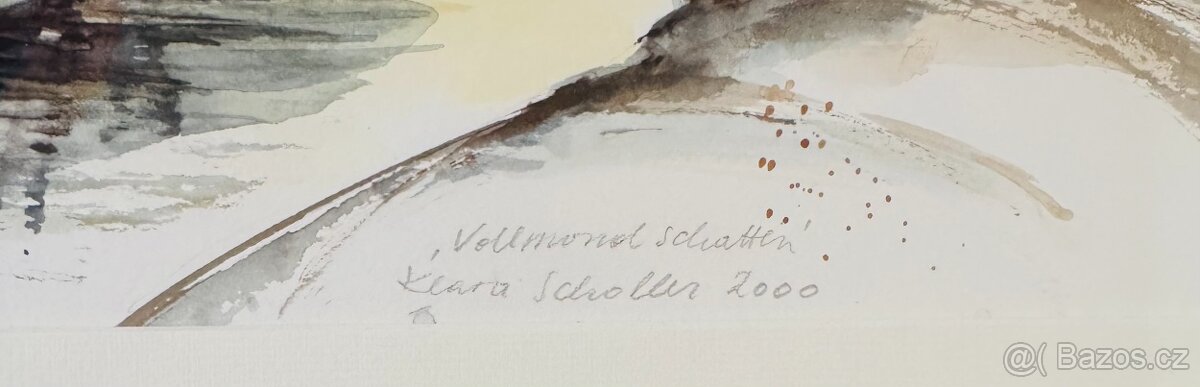 ‚Vollmondschatten'
Klara Scholler 2000
@( Bazos.cz